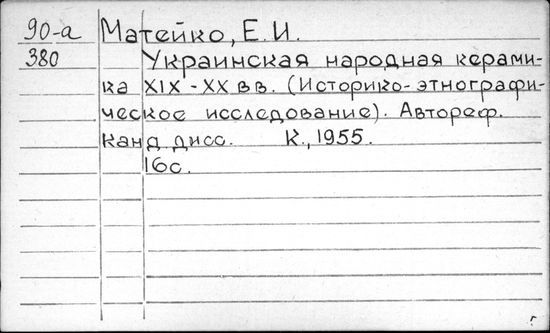 90-а Матейко, Е.И.
380 Украинская народная керами-
ка XIX-XX вв. (Историко-этнографи-
ческое исследование). Автореф.
канд дисс. К., 1955.
16с.